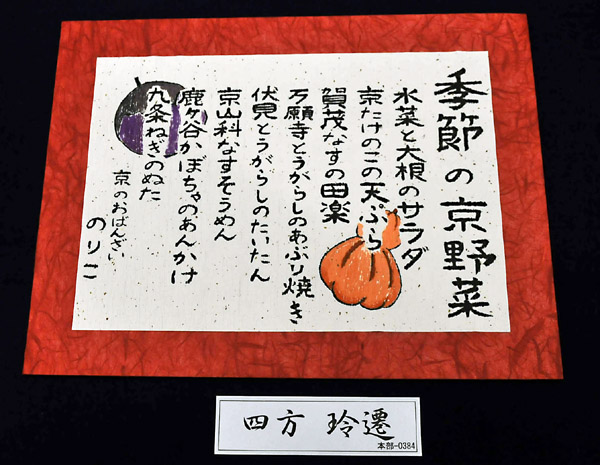 季節の京野菜
水菜と大根のサラダ
京たけのこの天ぷら
賀茂なすの田楽
万願寺とうがらしのあぶり焼き
伏見とうがらしのたいたん
京山科なすそうめん
鹿ヶ谷かぼちゃのあんかけ
九条ねぎのぬた
京のおばんざい
のりこ
四方 玲遷
本部-0384